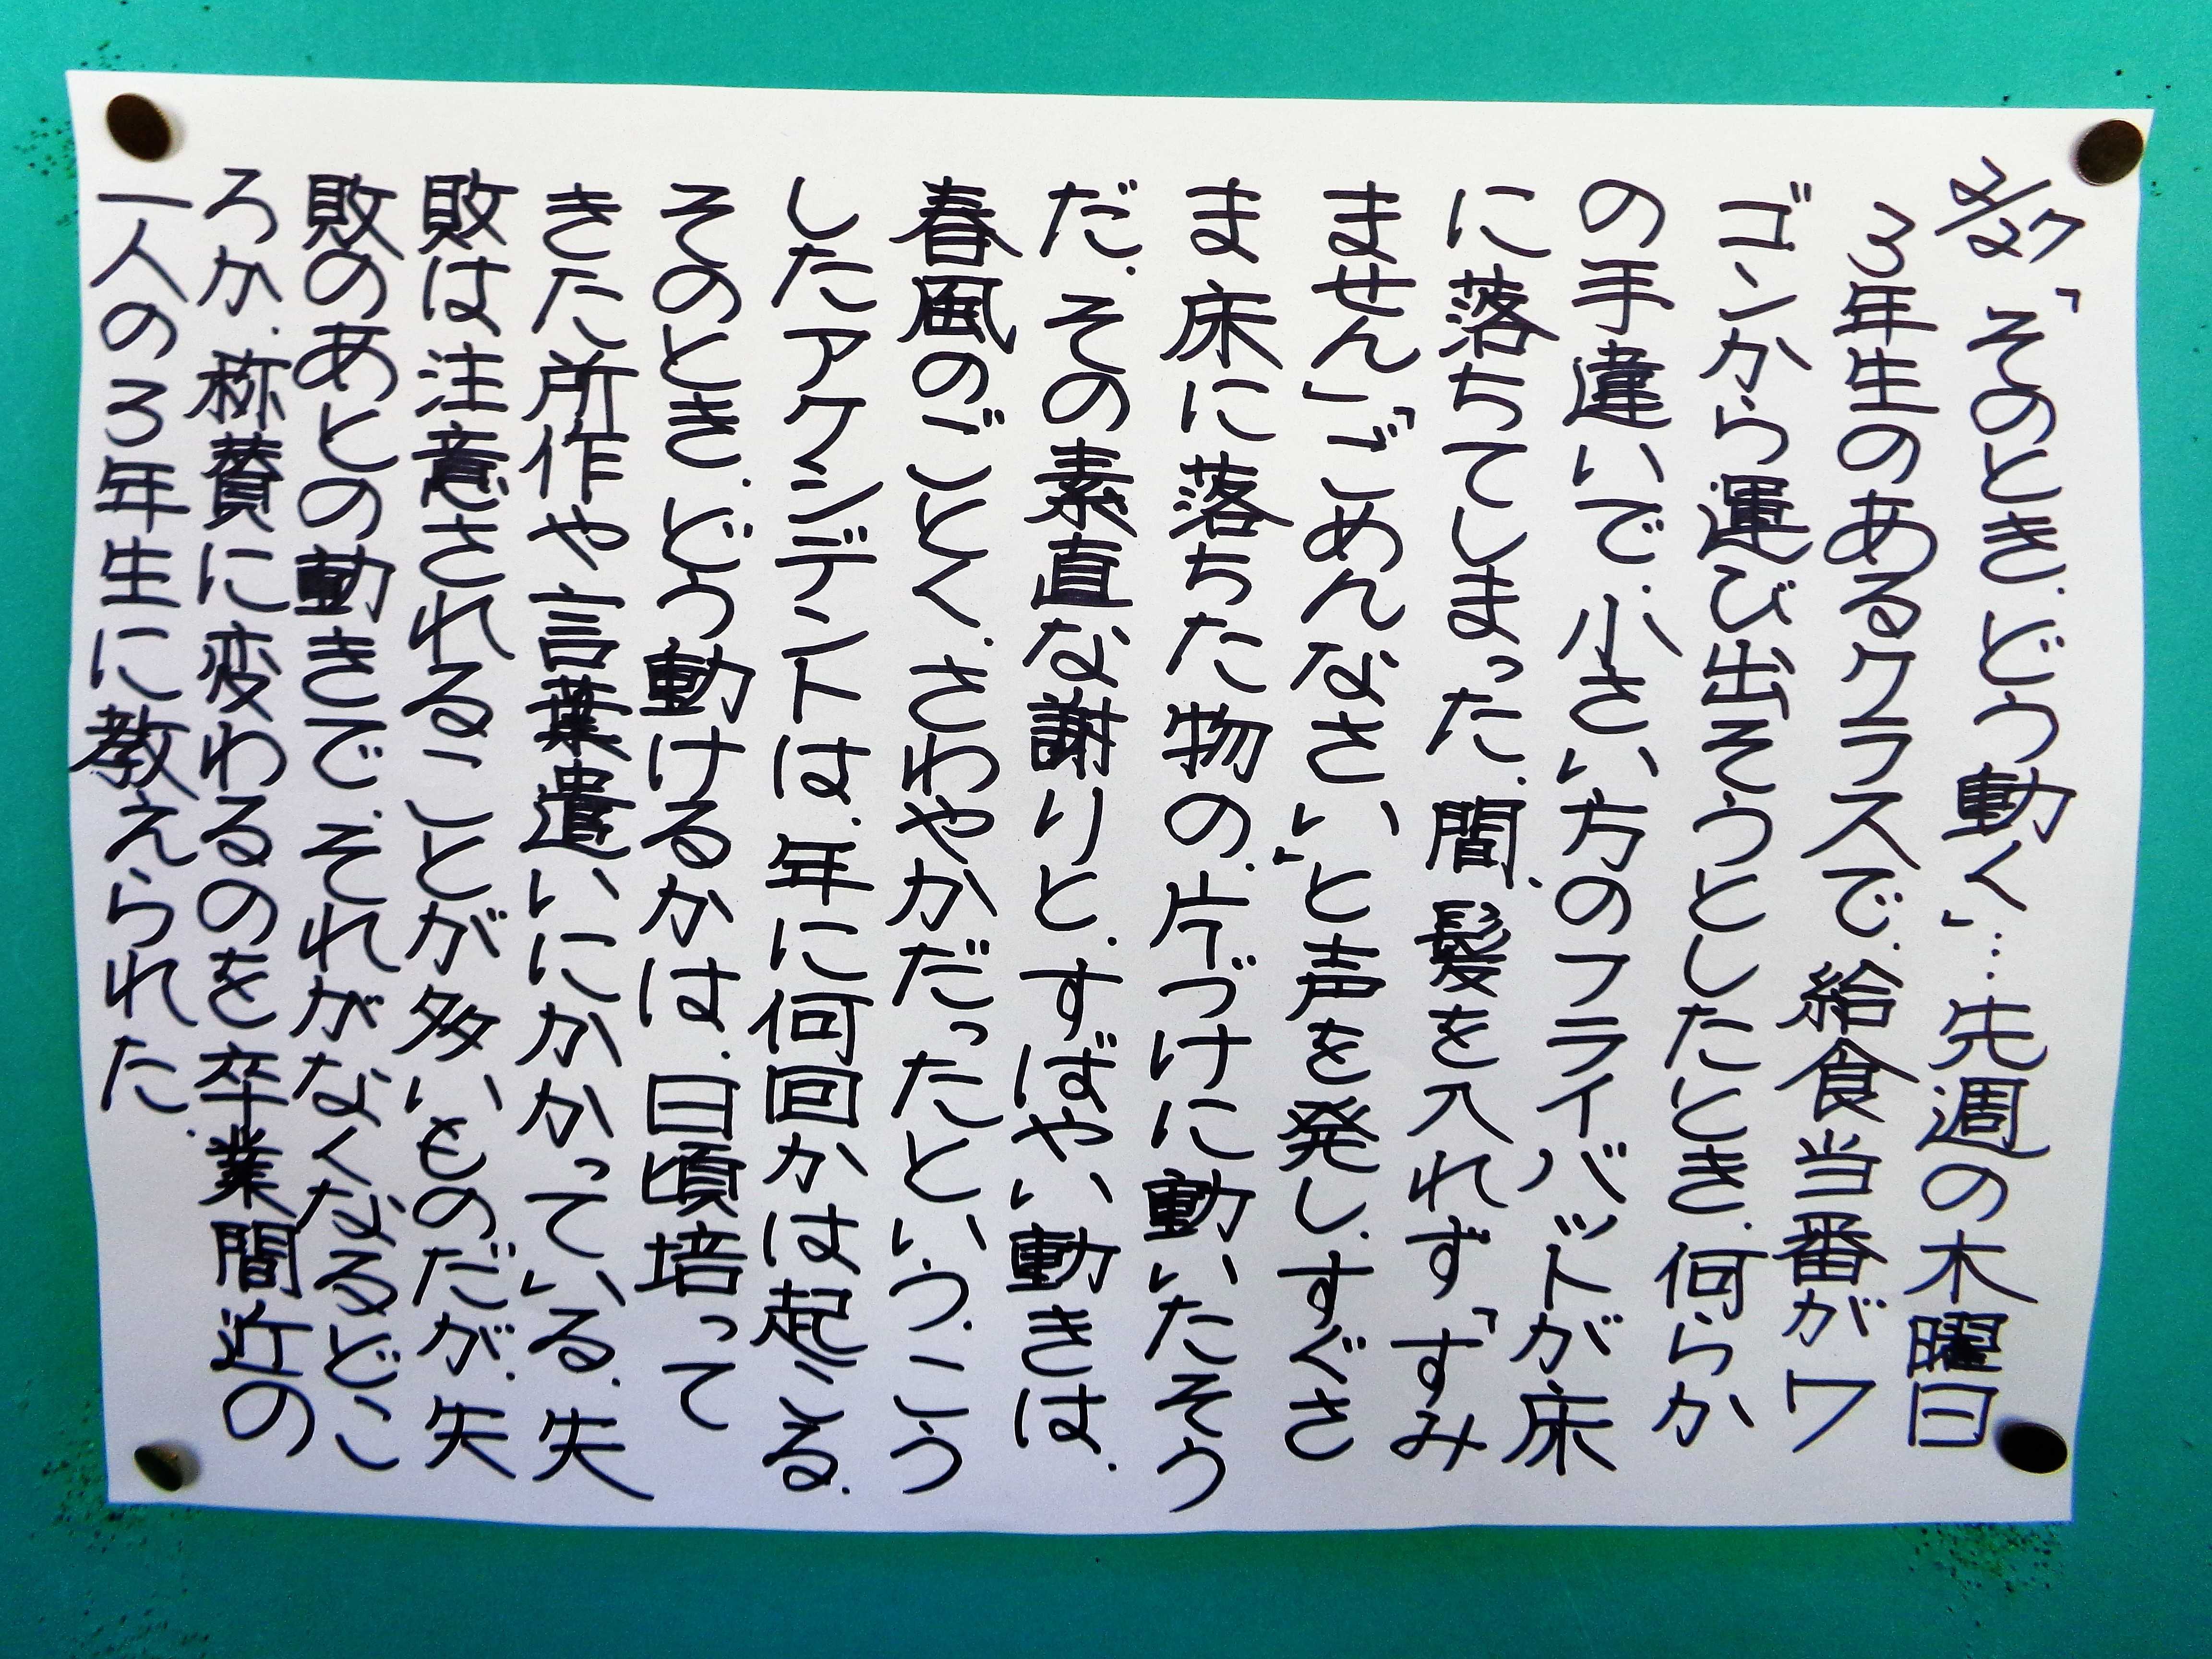 2/27「そのとき、どう動く」…先週の木曜日
3年生のあるクラスで、給食当番がワ
ゴンから運び出そうとしたとき、何らか
の手違いで、小さい方のフライバットが床
に落ちてしまった。間、髪を入れず、「すみ
ません」「ごめんなさい」と声を発し、すぐさ
ま床に落ちた物の片づけに動いたそう
だ。その素直な謝りと、すばやい動きは、
春風のごとく、さわやかだったという。こう
したアクシデントは、年に何回かは起こる。
そのとき、どう動けるかは、日頃培って
きた所作や言葉遣いにかかっている。失
敗は注意されることが多いものだが、失
敗のあとの動きで、それがなくなるどこ
ろか、称賛に変わるのを卒業間近の
一人の3年生に教えられた。